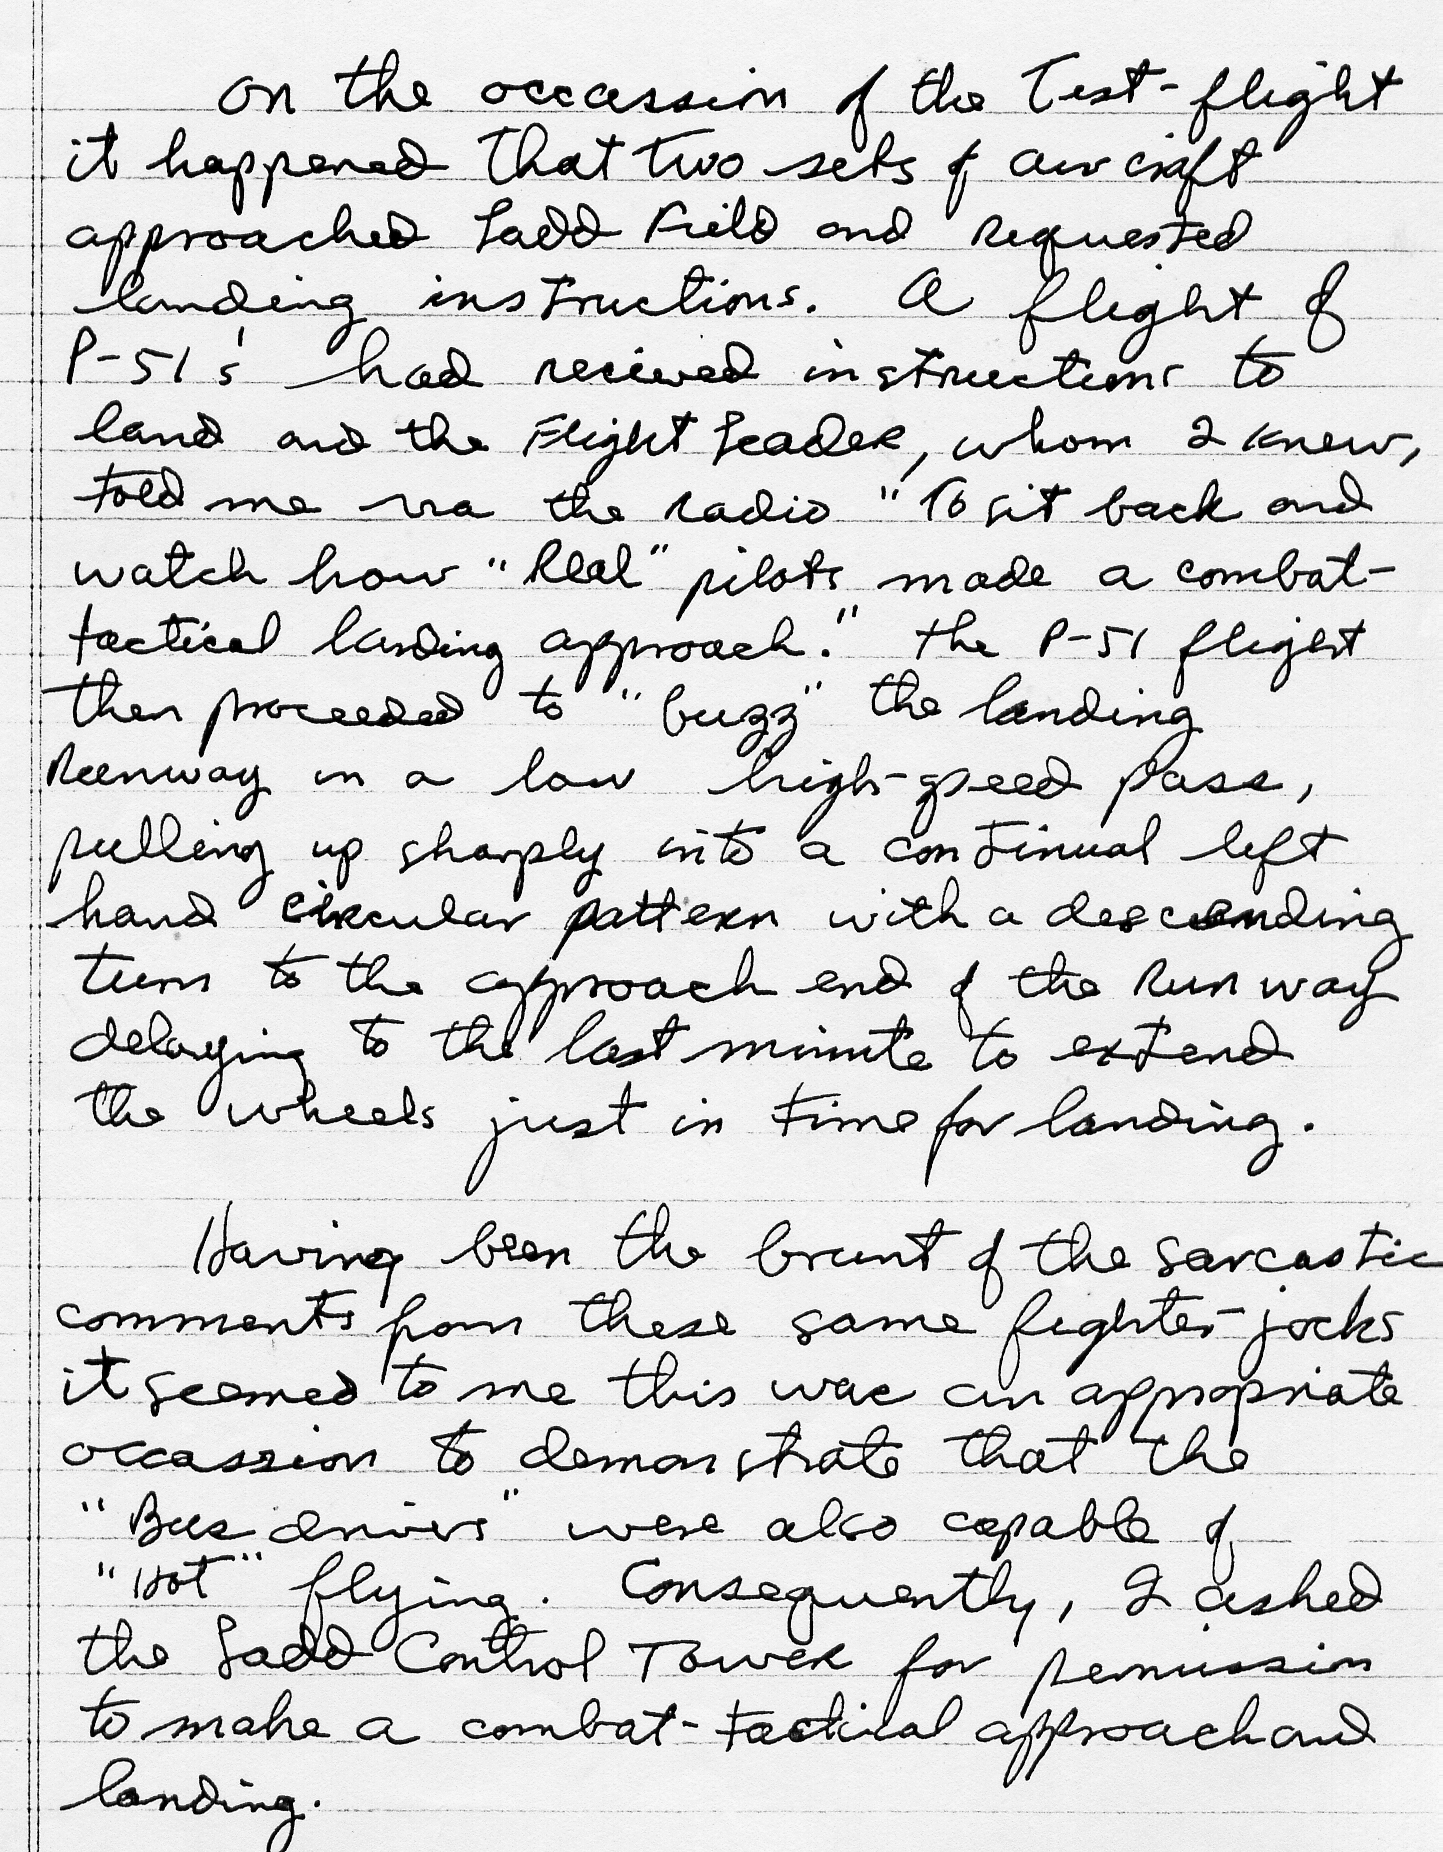 On the occassion of the Test-flight
it happened that two sets of aircraft
approached Ladd Field and requested
landing instructions. A flight of
P-51's had recieved instructions to
land and the Flight Leader, whom I knew,
told me via the radio "To sit back and
watch how "Real" pilots made a combat-
tactical landing approach." The P-51 flight
then proceeded to "buzz" the landing
Runway in a low high-speed pass,
pulling up sharply into a continual left
hand circular pattern with a descending
turn to the approach end of the Runway
delaying to the last minute to extend
the wheels just in time for landing.
Having been the brunt of the sarcastic
comments from these same fighter-jocks
it seemed to me this was an appropriate
occassion to demonstrate that the
"Bus drivers" were also capable of
"Hot" flying. Consequently, I asked
the Ladd Control Tower for permission
to make a combat-tactical approach and
landing.